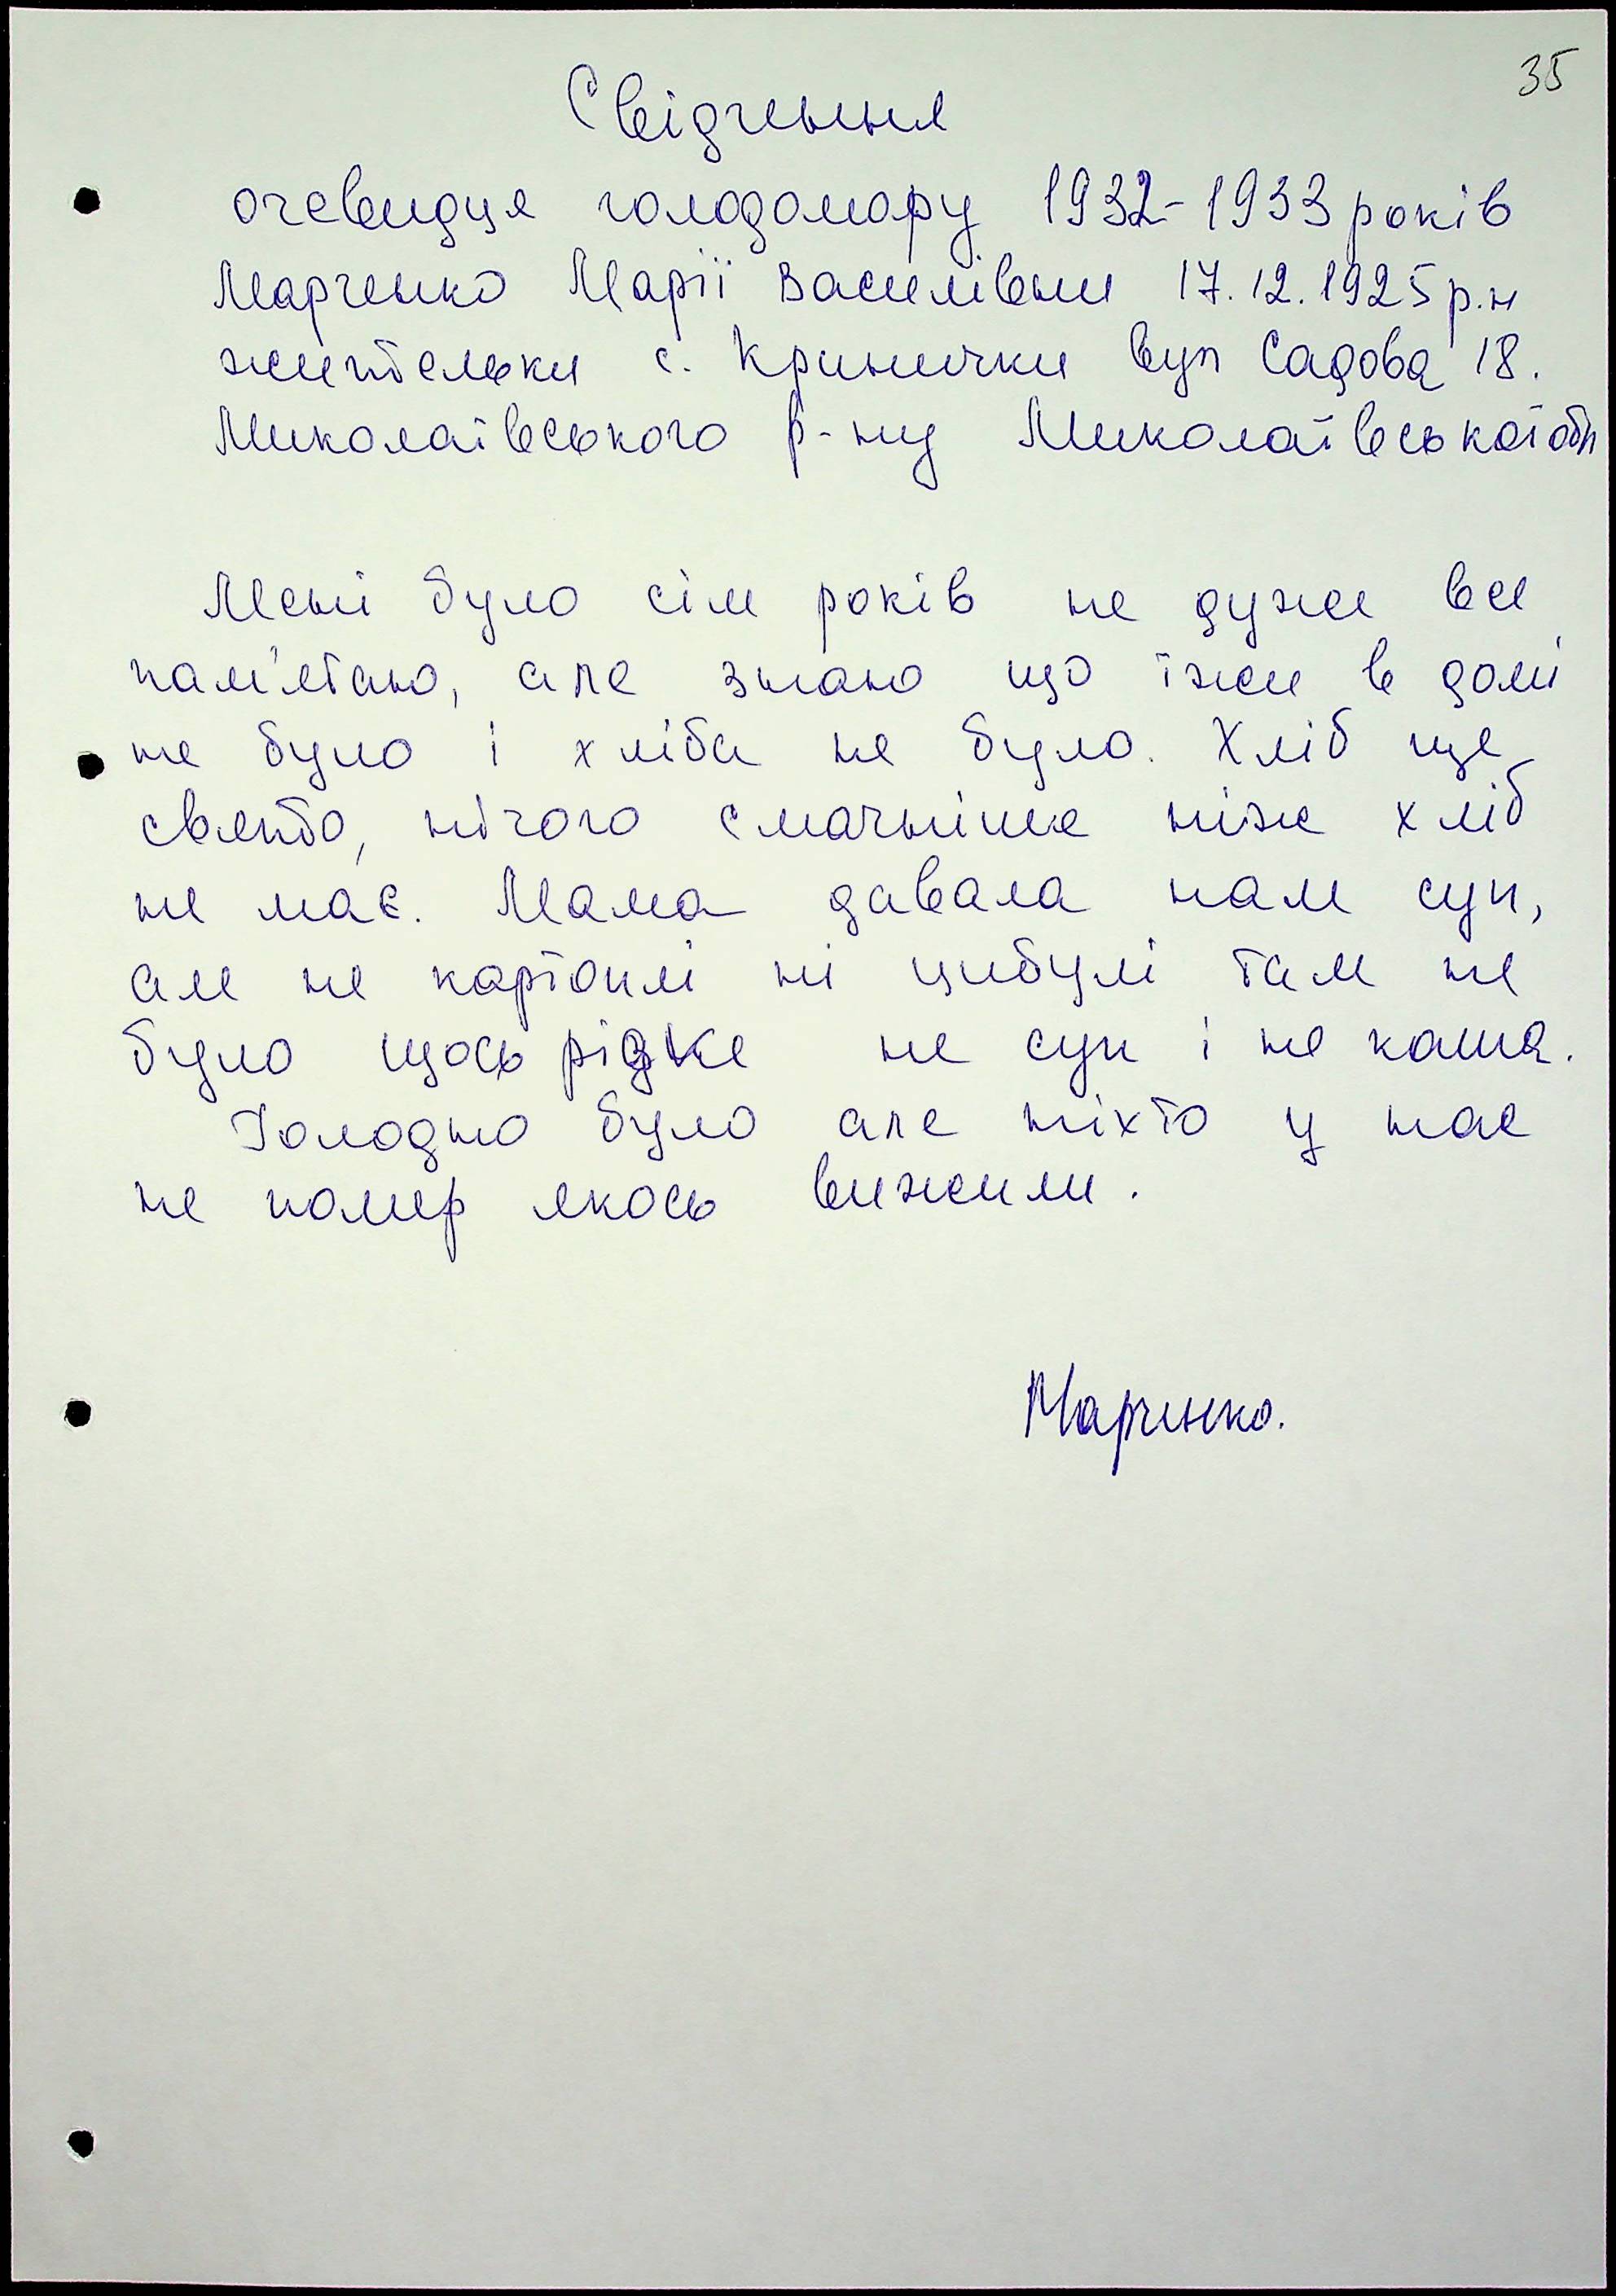 35
Свідчення
очевидця голодомору 1932-1933 років
Марченко Марії Василівни 17.12.1925 р.н
жительки с. Кринички вул Садова 18.
Миколаївського р-ну Миколаївської обл
Мені було сім років не дуже все
пам'ятаю, але знаю що їжи в домі
не було і хліба не було. Хліб це
свято, нічого смачніше ніж хліб
не має. Мама давала нам суп,
але не картоплі ні цибулі там не
було щось рідке не суп і не каша.
Голодно було але ніхто у нас
не помер якось вижили.
Марченко.